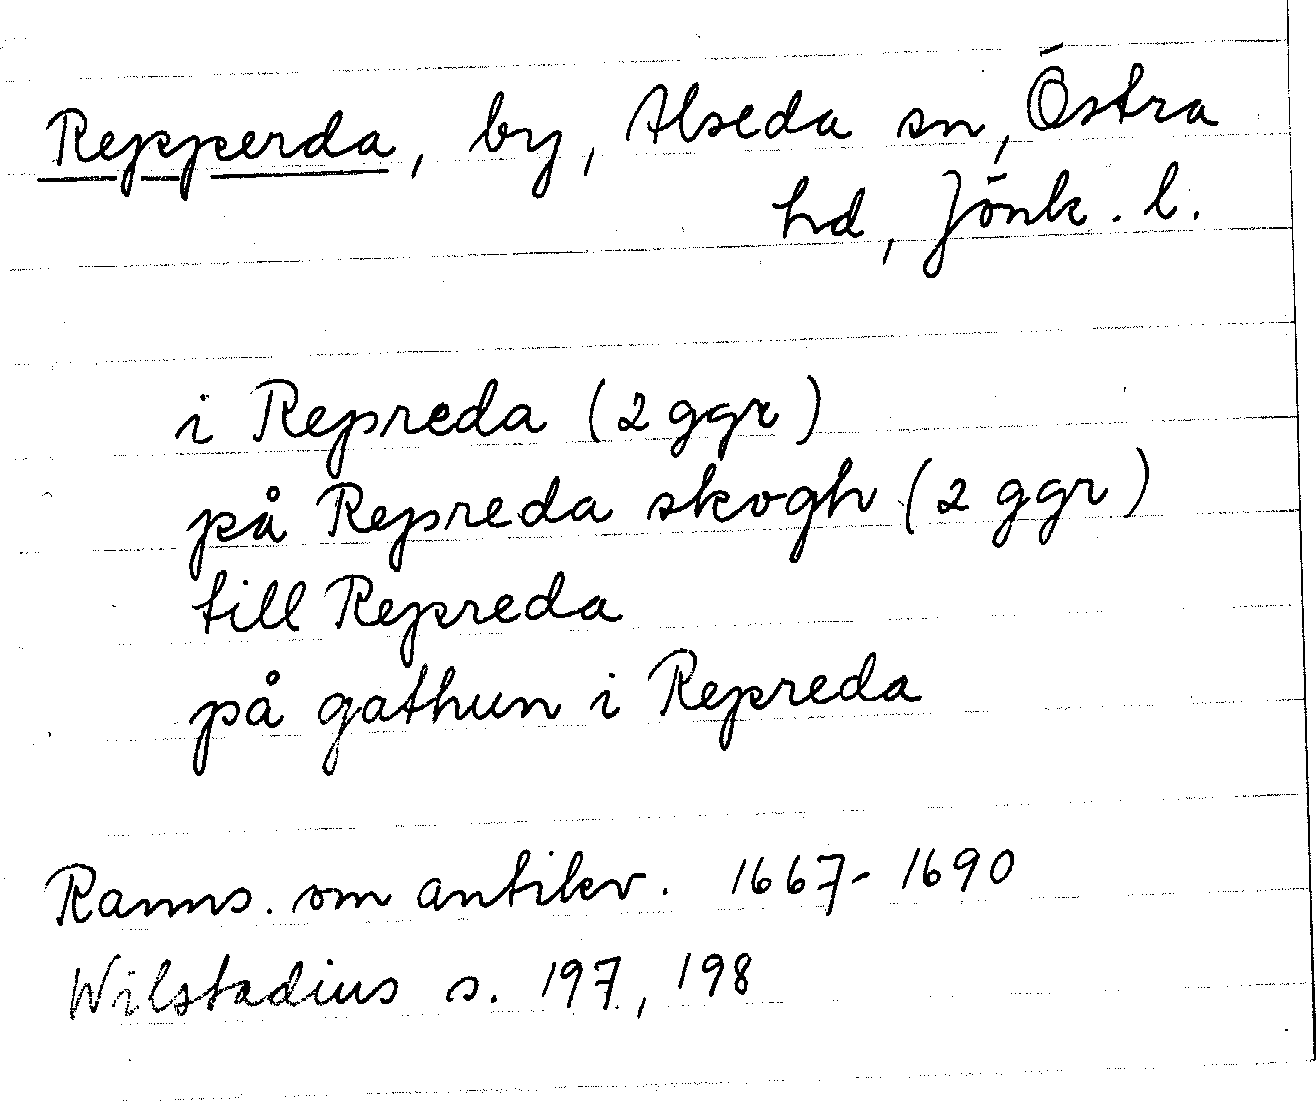 Repperda, by, Alseda sn, Östra
hd, Jönk. l.
i Repreda (2 ggr)
på Repreda skogh (2 ggr)
till Repreda
på gathun i Repreda
Ranns. om antikv. 1667-1690
Wilstadius s. 197, 198